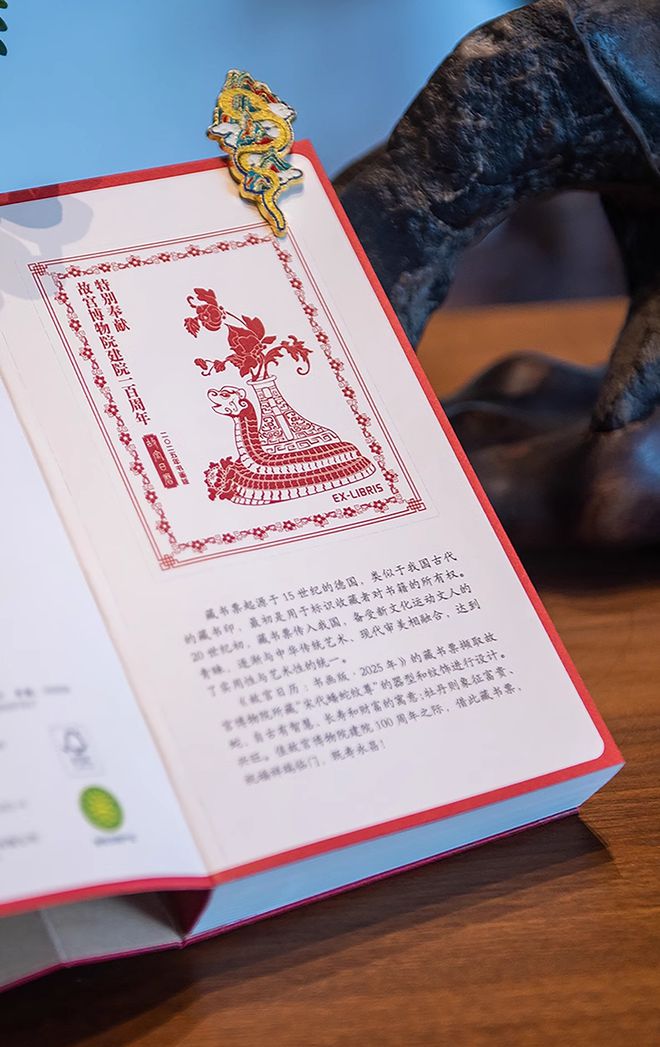 特别奉献
故宫博物院建院一百周年
二〇二五年书画版
故宫日历
EX-LIBRIS
藏书票起源于15世纪的德国，类似于我国古代
的藏书印，最初是用于标识收藏者对书籍的所有权。
20世纪初，藏书票传入我国，备受新文化运动文人的
青睐，逐渐与中华传统艺术、现代审美相融合，达到
了实用性与艺术性的统一。
《故宫日历：书画版·2025年》的藏书票撷取故
宫博物院所藏“宋代蟠蛇纹尊”的器型和纹饰进行设计。
蛇，自古有智慧、长寿和财富的寓意；牡丹则象征富贵、
兴旺。值故宫博物院建院100周年之际，借此藏书票，
祥瑞临门，既寿永昌！